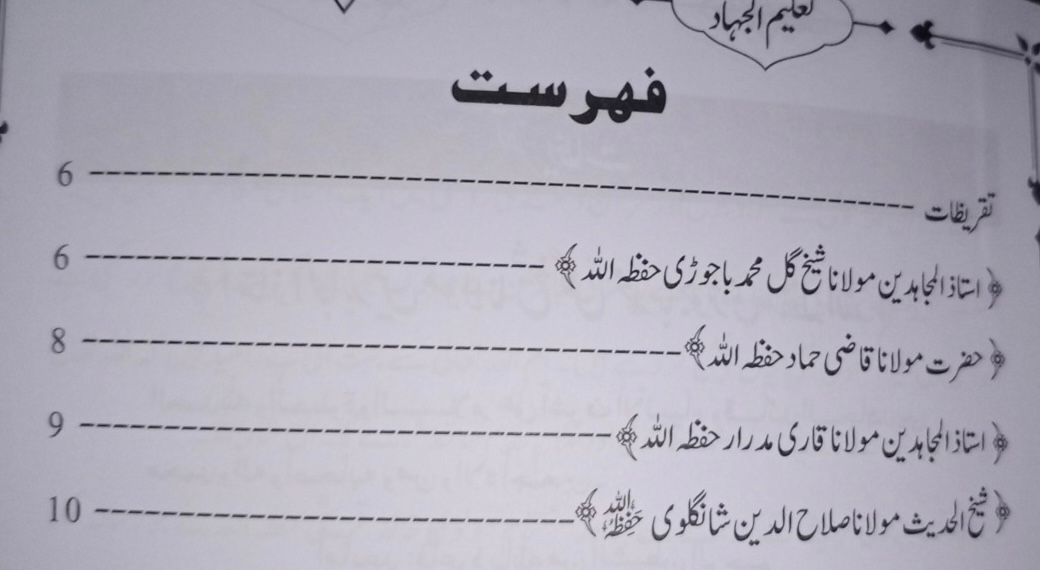 تعلیم الجہاد
فہرست
تقریظات ---------- 6
﴿ استاذ المجاہدین مولانا شیخ گل محمد باجوڑی حفظہ اللہ ﴾ ---------- 6
﴿ حضرت مولانا قاضی حماد حفظہ اللہ ﴾ ---------- 8
﴿ استاذ المجاہدین مولانا قاری مدرار حفظہ اللہ ﴾ ---------- 9
﴿ شیخ الحدیث مولانا صلاح الدین شانگلوی حَفِظَہُ اللہ ﴾ ---------- 10